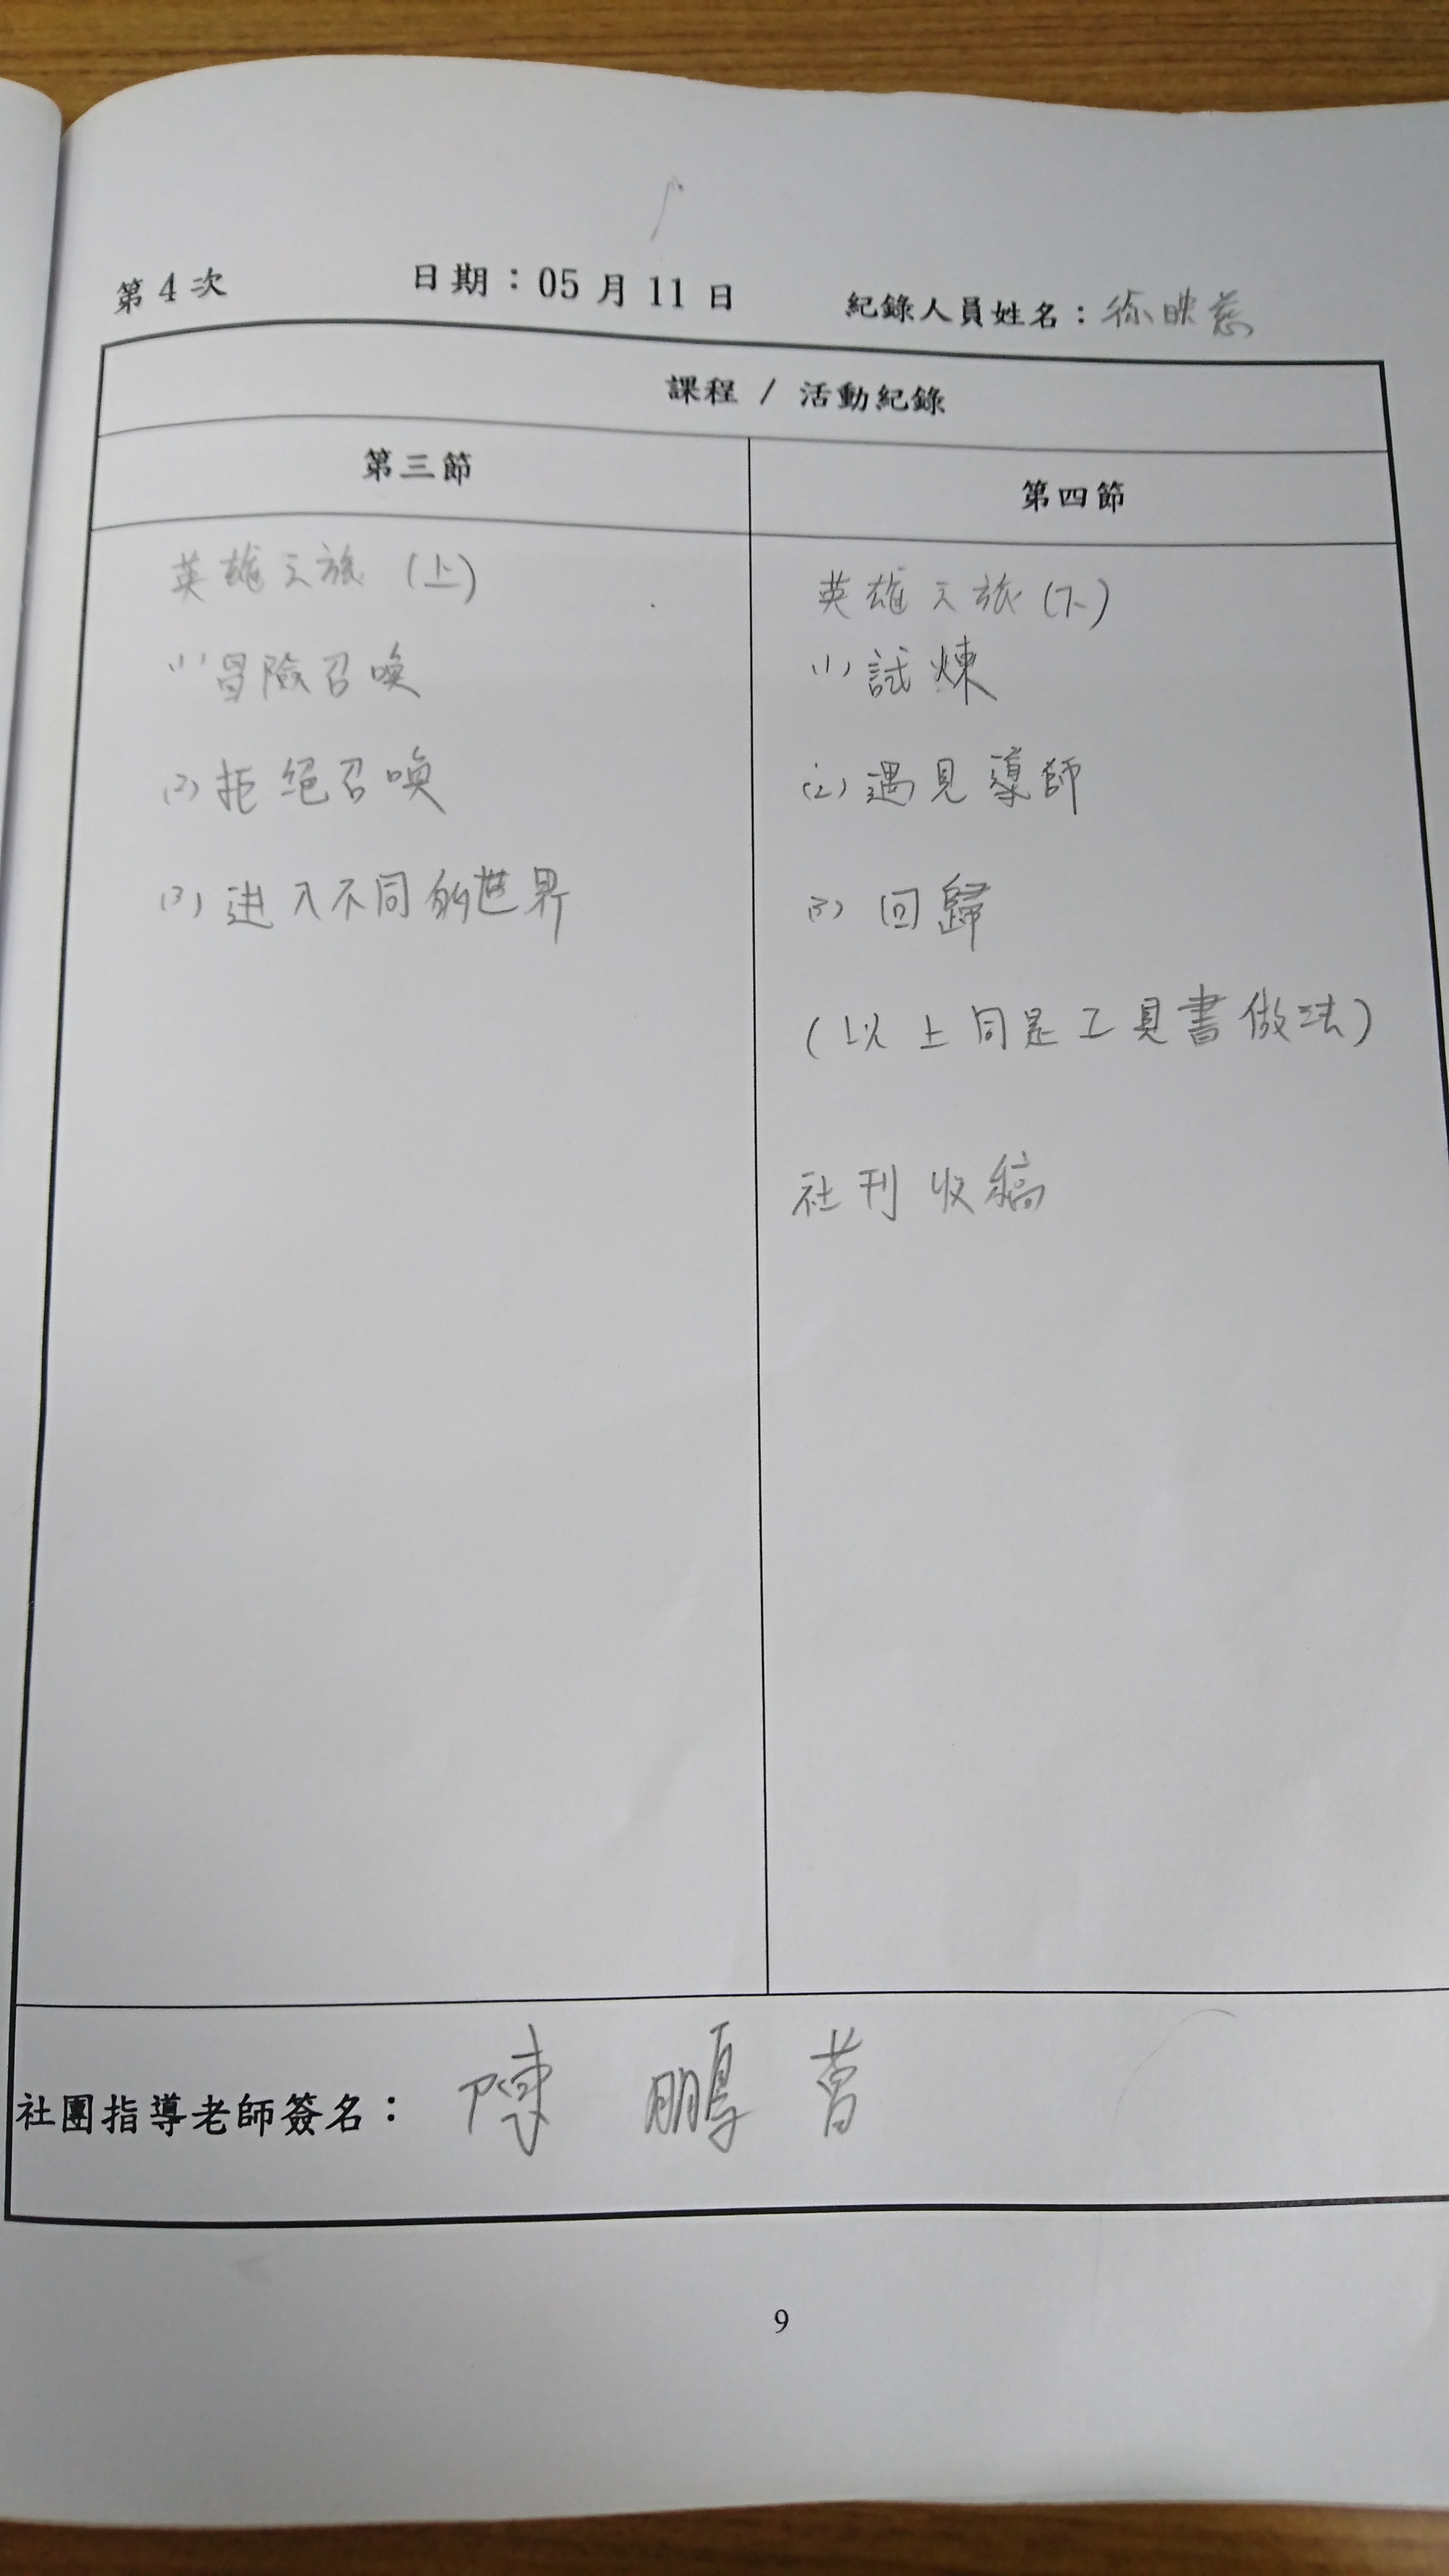 第4次 日期：05月11日 紀錄人員姓名：徐映慈
課程 / 活動紀錄
第三節
英雄之旅 (上)
(1) 冒險召喚
(2) 拒絕召喚
(3) 進入不同的世界
第四節
英雄之旅 (下)
(1) 試煉
(2) 遇見導師
(3) 回歸
(以上同是工具書做法)
社刊收稿
社團指導老師簽名： 陳 鵬
9